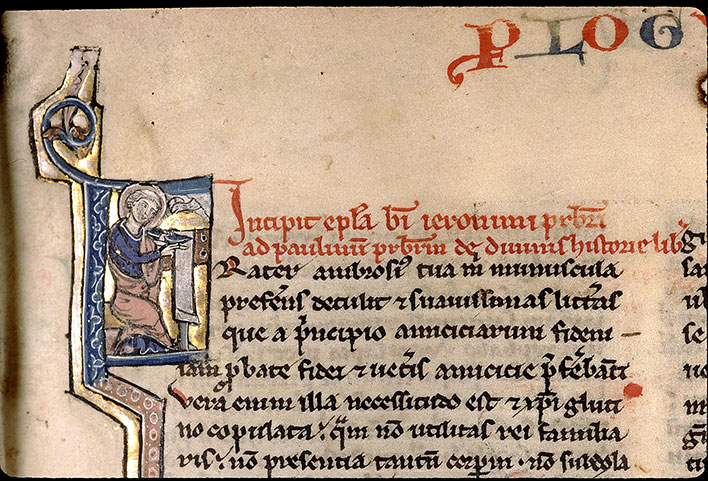 PLOG
Incipit epl̅a bi̅ ieronimi prb̅ri
ad paulinu̅ prb̅rm de diuinis historie lib
Rater ambrosi᷒ tua m̅ munuscula
preferēs detulit ⁊ suauissimas litt̅as
que a p̅ncipio amiciciarum fidem
iam ꝓbate fidei ⁊ uet̅is amicicie p̅fe̅bāt
vera enim illa necessitudo est ⁊ xp̅i gluti
no copulata · q̅m nō utilitas rei familia
ris · nō presentia tantū corpm̅ · nō subdola